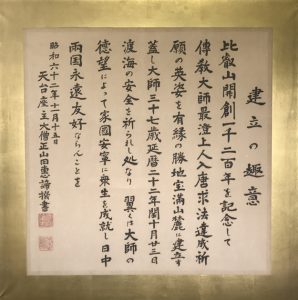 建立の趣意
比叡山開創一千二百年を記念して
傳教大師最澄上人入唐求法達成祈
願の英姿を有縁の勝地宝満山麓に建立す
蓋し大師三十七歳延暦二十二年閏十月廿三日
渡海の安全を祈られし処なり 冀くは大師の
徳望によって家國安寧に衆生を成就し日中
両国永遠友好ならんことを
昭和六十二年十一月十九日
天台座主大僧正山田惠諦撰書